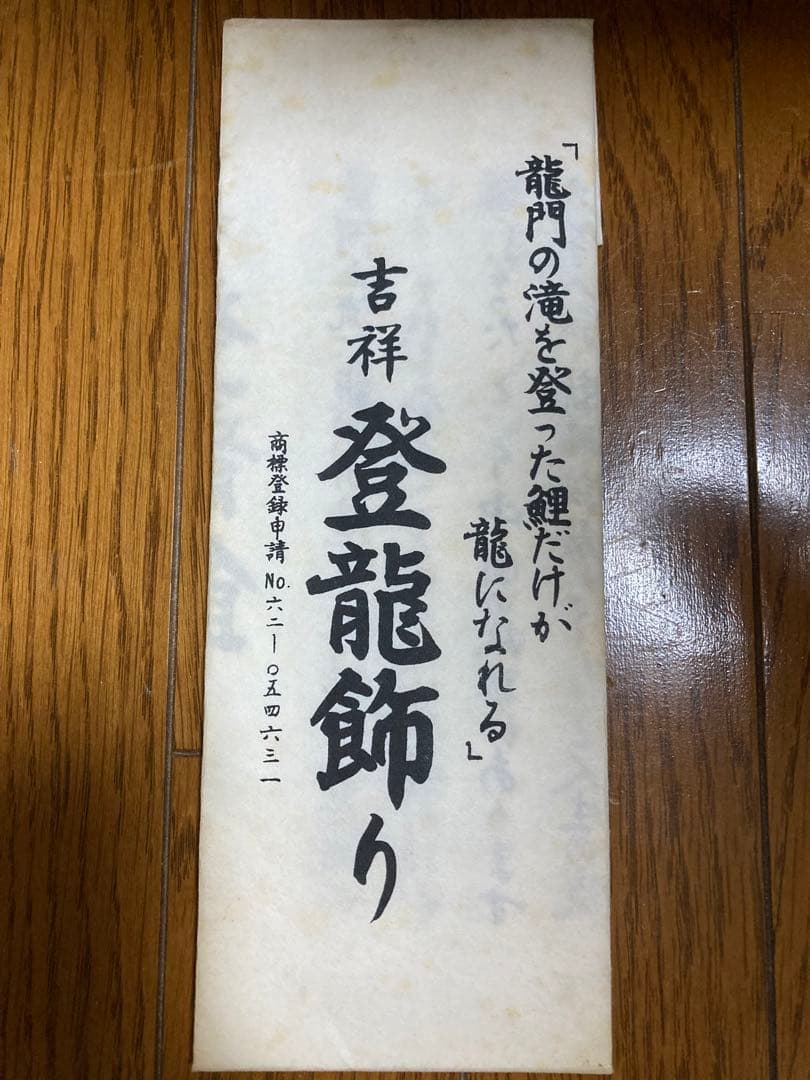 「龍門の滝を登った鯉だけが
龍になれる」
吉祥
登龍飾り
商標登録申請No.六二ー〇五四六三一